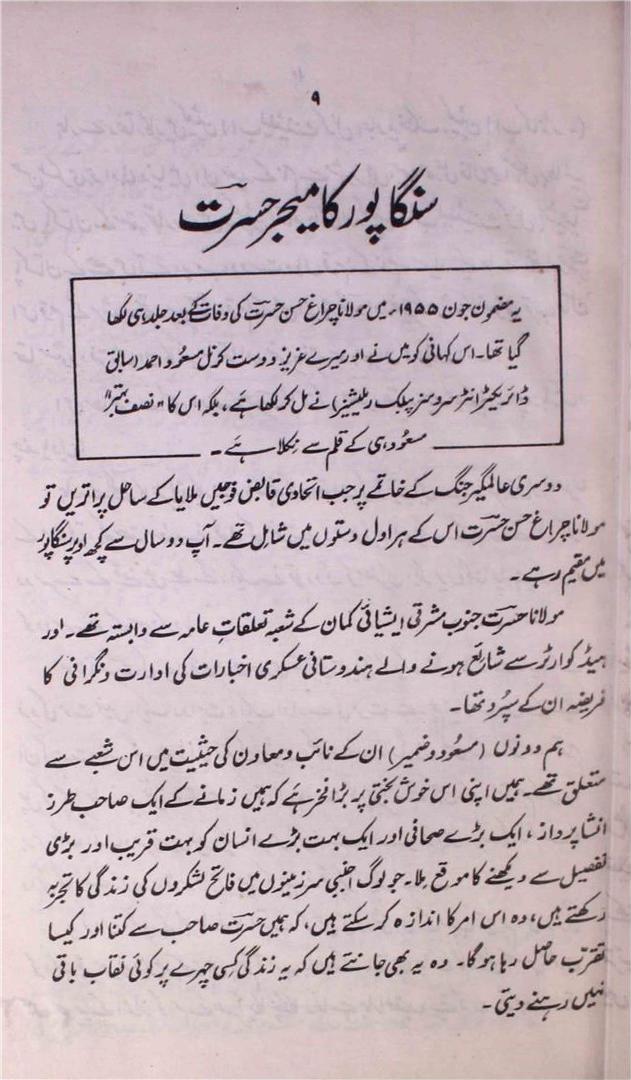 ۹
سنگاپور کا میجر حسرتؔ
یہ مضمون جون ۱۹۵۵ء میں مولانا چراغ حسن حسرتؔ کی وفات کے بعد جلد ہی لکھا
گیا تھا۔ اس کہانی کو میں نے اور میرے عزیز دوست کرنل مسعود احمد (سابق
ڈائریکٹر انٹر سروسز پبلک ریلیشنز) نے مل کر لکھا ہے، بلکہ اس کا "نصف بہتر"
مسعود ہی کے قلم سے نکلا ہے۔
دوسری عالمگیر جنگ کے خاتمے پر جب اتحادی قابض فوجیں ملایا کے ساحل پر اتریں تو
مولانا چراغ حسن حسرتؔ اس کے ہراول دستوں میں شامل تھے۔ آپ دو سال سے کچھ اوپر سنگاپور
میں مقیم رہے۔
مولانا حسرتؔ جنوب مشرقی ایشیائی کمان کے شعبہ تعلقاتِ عامہ سے وابستہ تھے۔ اور
ہیڈ کوارٹر سے شایع ہونے والے ہندوستانی عسکری اخبارات کی ادارت و نگرانی کا
فریضہ ان کے سپُرد تھا۔
ہم دونوں (مسعود و ضمیر) ان کے نائب و معاون کی حیثیت میں اس شعبے سے
متعلق تھے۔ ہمیں اپنی اس خوش بختی پر بڑا فخر ہے کہ ہمیں زمانے کے ایک صاحب طرز
انشا پرداز، ایک بڑے صحافی اور ایک بہت بڑے انسان کو بہت قریب اور بڑی
تفصیل سے دیکھنے کا موقع ملا۔ جو لوگ اجنبی سرزمینوں میں فاتح لشکروں کی زندگی کا تجربہ
رکھتے ہیں، وہ اس امر کا اندازہ کر سکتے ہیں، کہ ہمیں حسرتؔ صاحب سے کتنا اور کیسا
تقرّب حاصل رہا ہوگا۔ وہ یہ بھی جانتے ہیں کہ یہ زندگی کسی چہرے پر کوئی نقاب باقی
نہیں رہنے دیتی۔